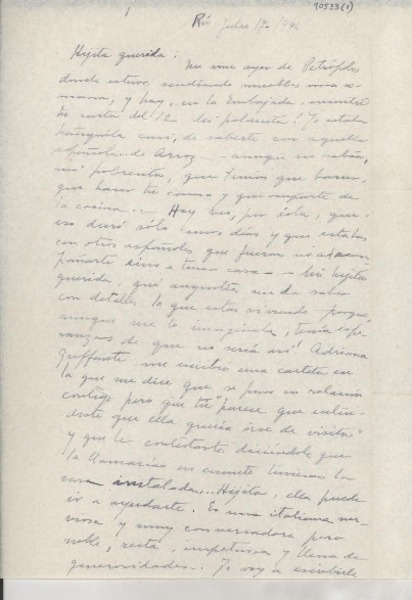 10533(1)
Río. julio 17. 194
Hijita querida: Me vine ayer de Petrópolis
donde estuve vendiendo muebles una se-
mana, y hoy, en la Embajada, encontré
tu carta del 12. Mi pobrecita! Yo estaba
tranquila casi, de saberte con aquella
española de Arroz - aunque no sabía,
mi pobrecita, que tenías que barrer,
que hacer tu cama y que
la cocina. - Hoy veo, por ésta, que
eso duró sólo unos días y que estabas
con otros españoles que fueron no a acom-
pañarte sino a tener casa - Mi hijita
querida, qué angustia me da saber
con detalles lo que estás viviendo porque
aunque me lo imaginaba, tenía espe-
ranzas de que no sería así! Adriana
me escribió una cartita en
la que me dice que se puso en relación
contigo pero que tú "parece que enten-
diste que ella quería irse de visita"
y que le contestaste diciéndole que
la llamarías en cuanto tuvieras la
casa instalada... Hijita, ella puede
ir a ayudarte. Es una italiana ner-
viosa y muy conversadora pero
noble, recta, impetuosa y llena de
generosidades.. Yo voy a escribirle